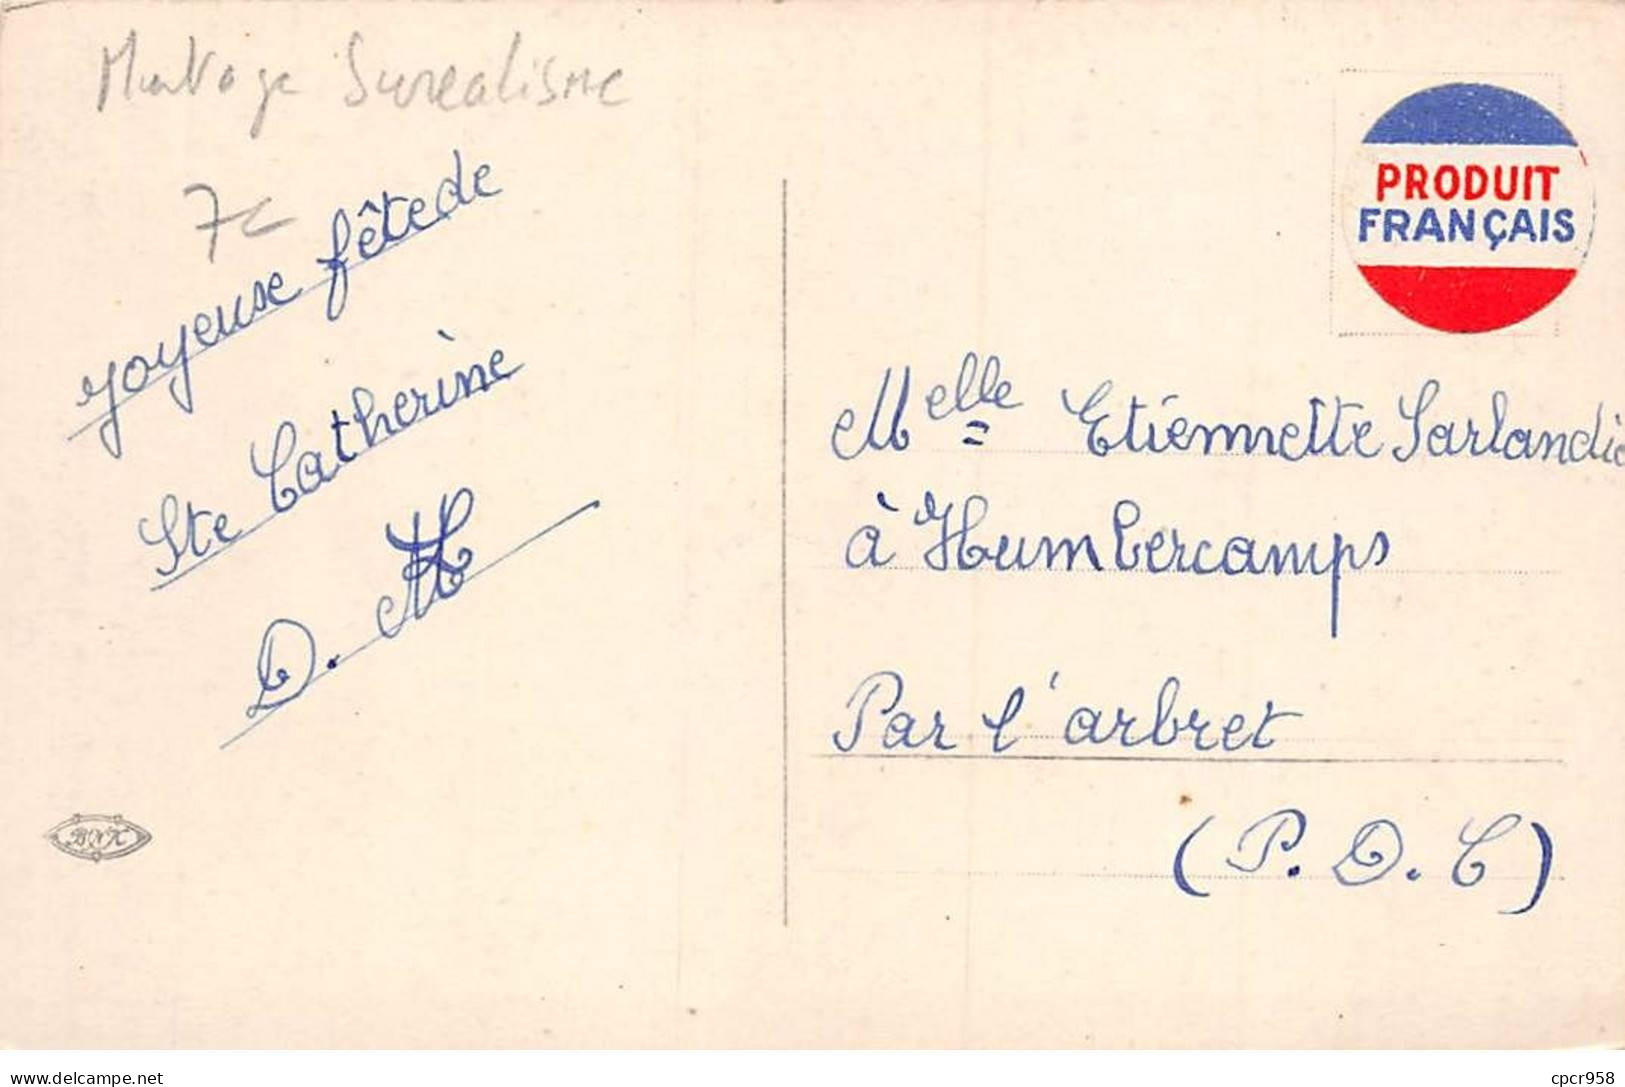 Montage Surealisme
7c
Joyeuse fête de
Ste Catherine
D.
BNK
PRODUIT
FRANÇAIS
Melle Etiennette Sarlandi
à Humbercamps
Par l'arbret
(P.D.C)
delcampe.net
cpcr958